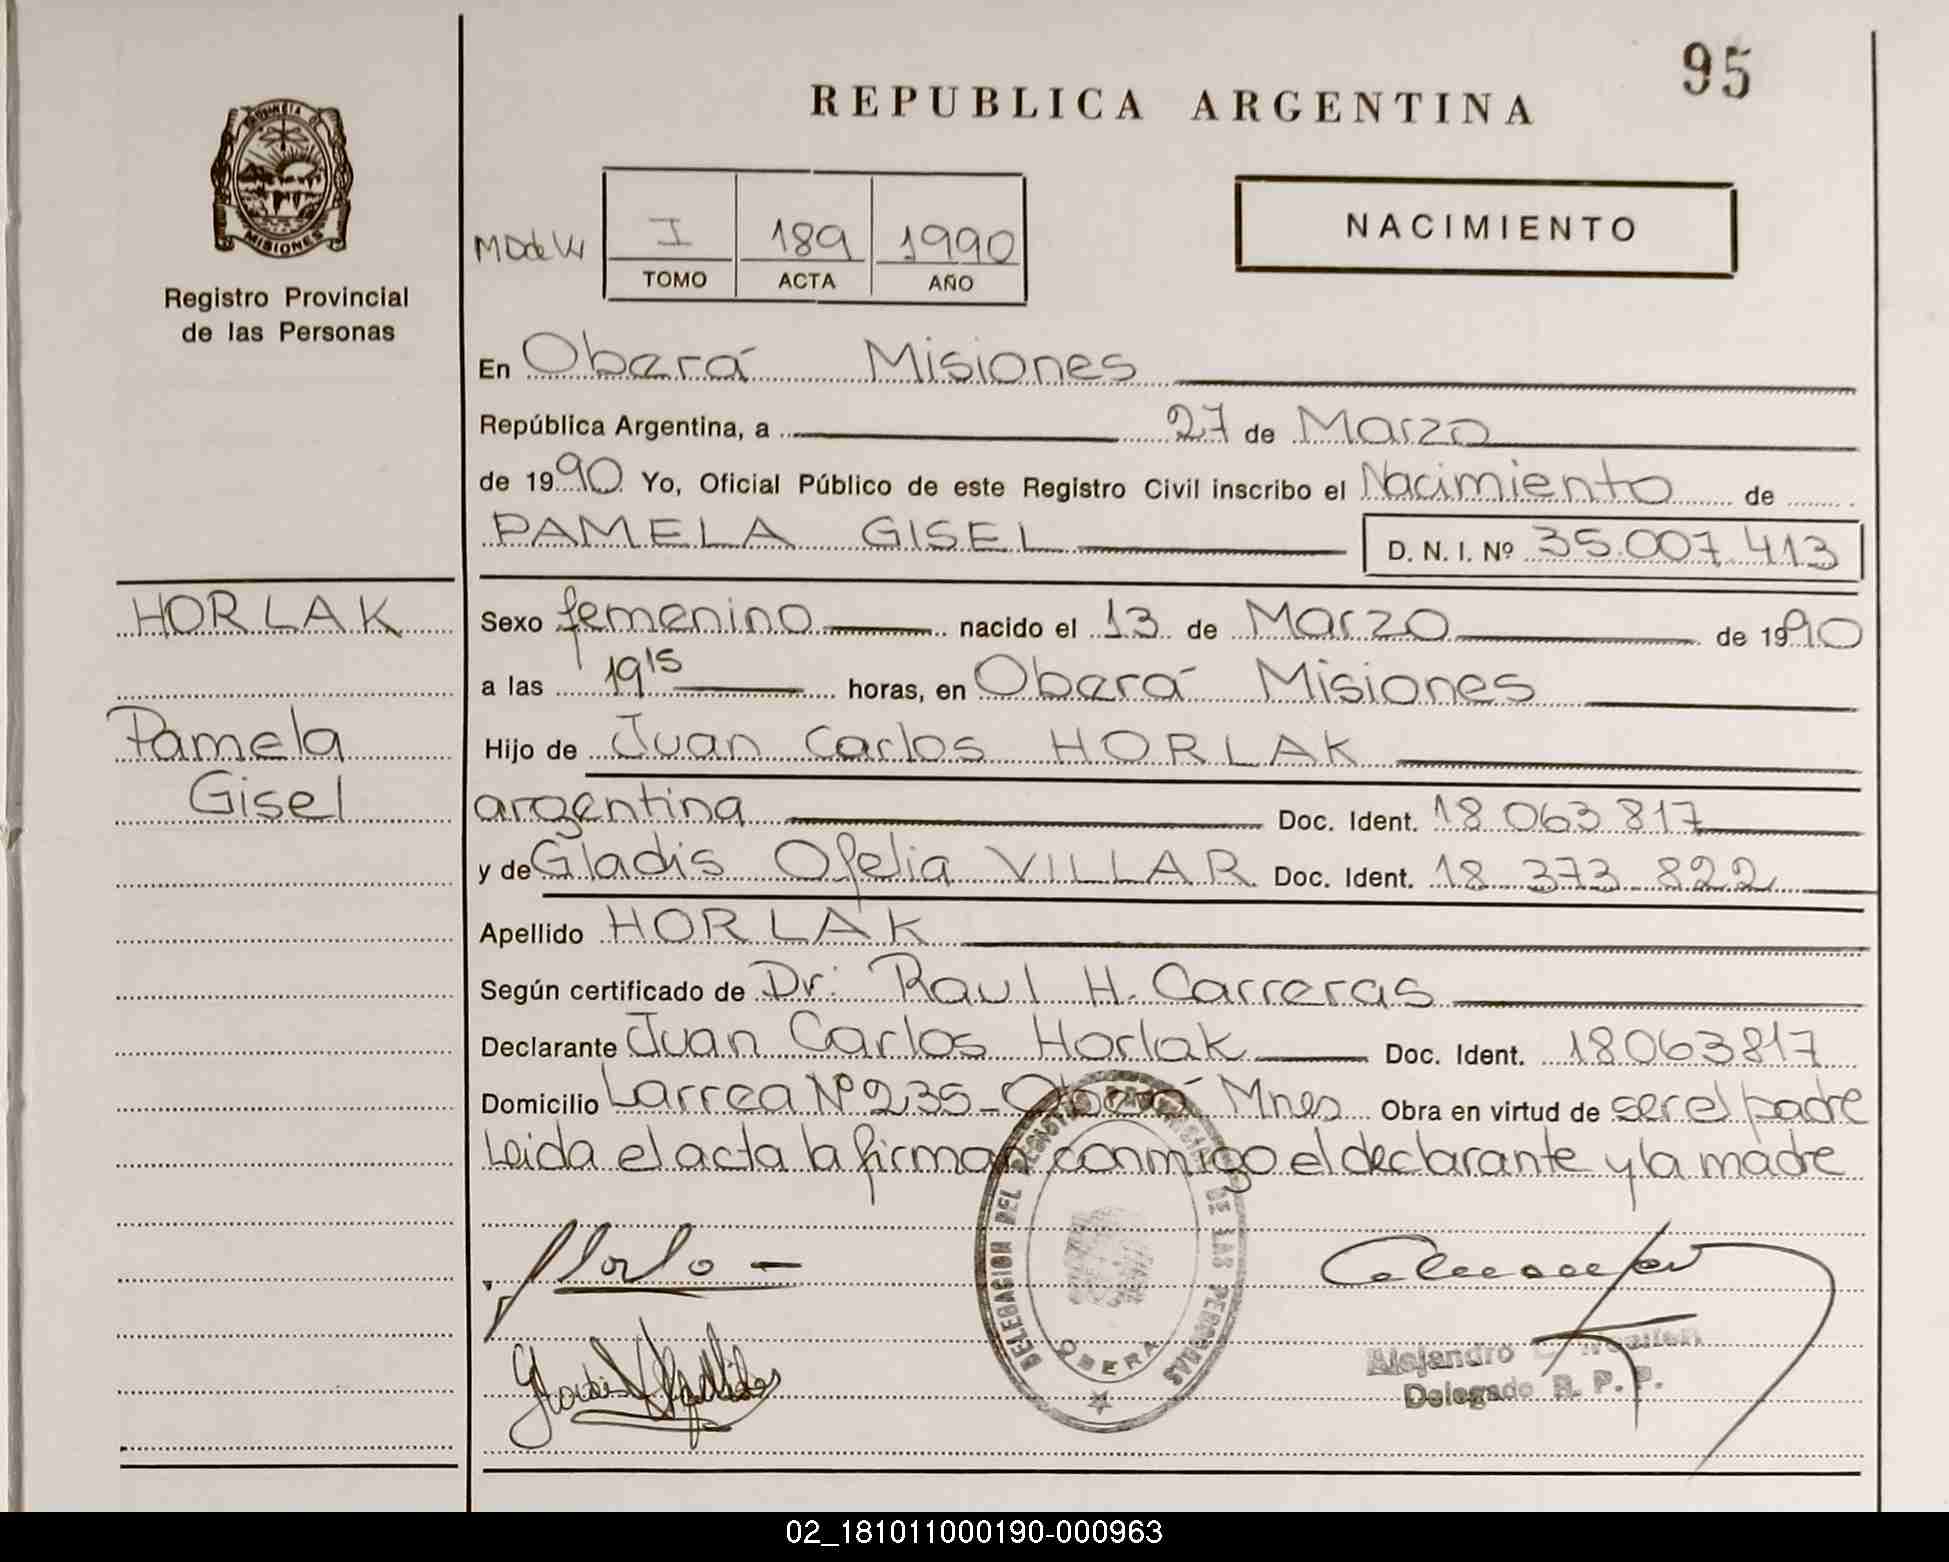 95
REPUBLICA ARGENTINA
PROVINCIA DE
MISIONES
Registro Provincial
de las Personas
I 189 1990
TOMO ACTA AÑO
NACIMIENTO
En Oberá Misiones
República Argentina, a 27 de Marzo
de 1990 Yo, Oficial Público de este Registro Civil inscribo el Nacimiento de
PAMELA GISEL D. N. I. Nº 35.007.413
HORLAK
Pamela
Gisel
Sexo femenino nacido el 13 de Marzo de 1990
a las 19 15 horas, en Oberá Misiones
Hijo de Juan Carlos HORLAK
argentina Doc. Ident. 18 063 817
y de Gladis Ofelia VILLAR Doc. Ident. 18 373 822
Apellido HORLAK
Según certificado de Dr. Raul H. Carreras
Declarante Juan Carlos Horlak Doc. Ident. 18063817
Domicilio Larrea Nº 235 - Oberá Mnes Obra en virtud de ser el padre
Leida el acta la firman conmigo el declarante y la madre
DELEGACION DEL REGISTRO PROVINCIAL DE LAS PERSONAS
OBERA
Alejandro
Delegado R. P. P.
02_181011000190-000963